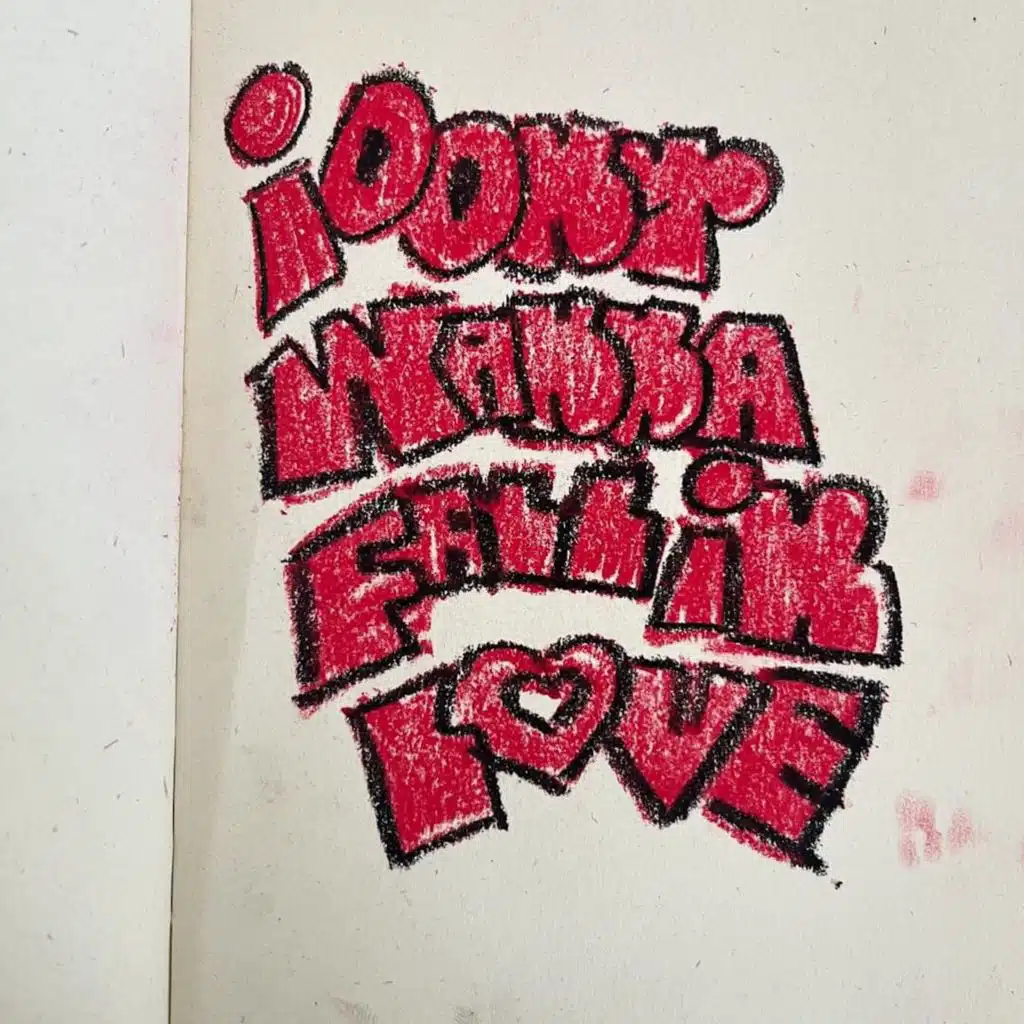 i DON'T
WANNA
FALL iN
LOVE